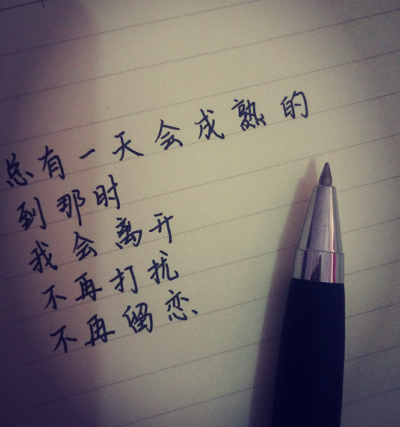 总有一天会成熟的
到那时
我会离开
不再打扰
不再留恋